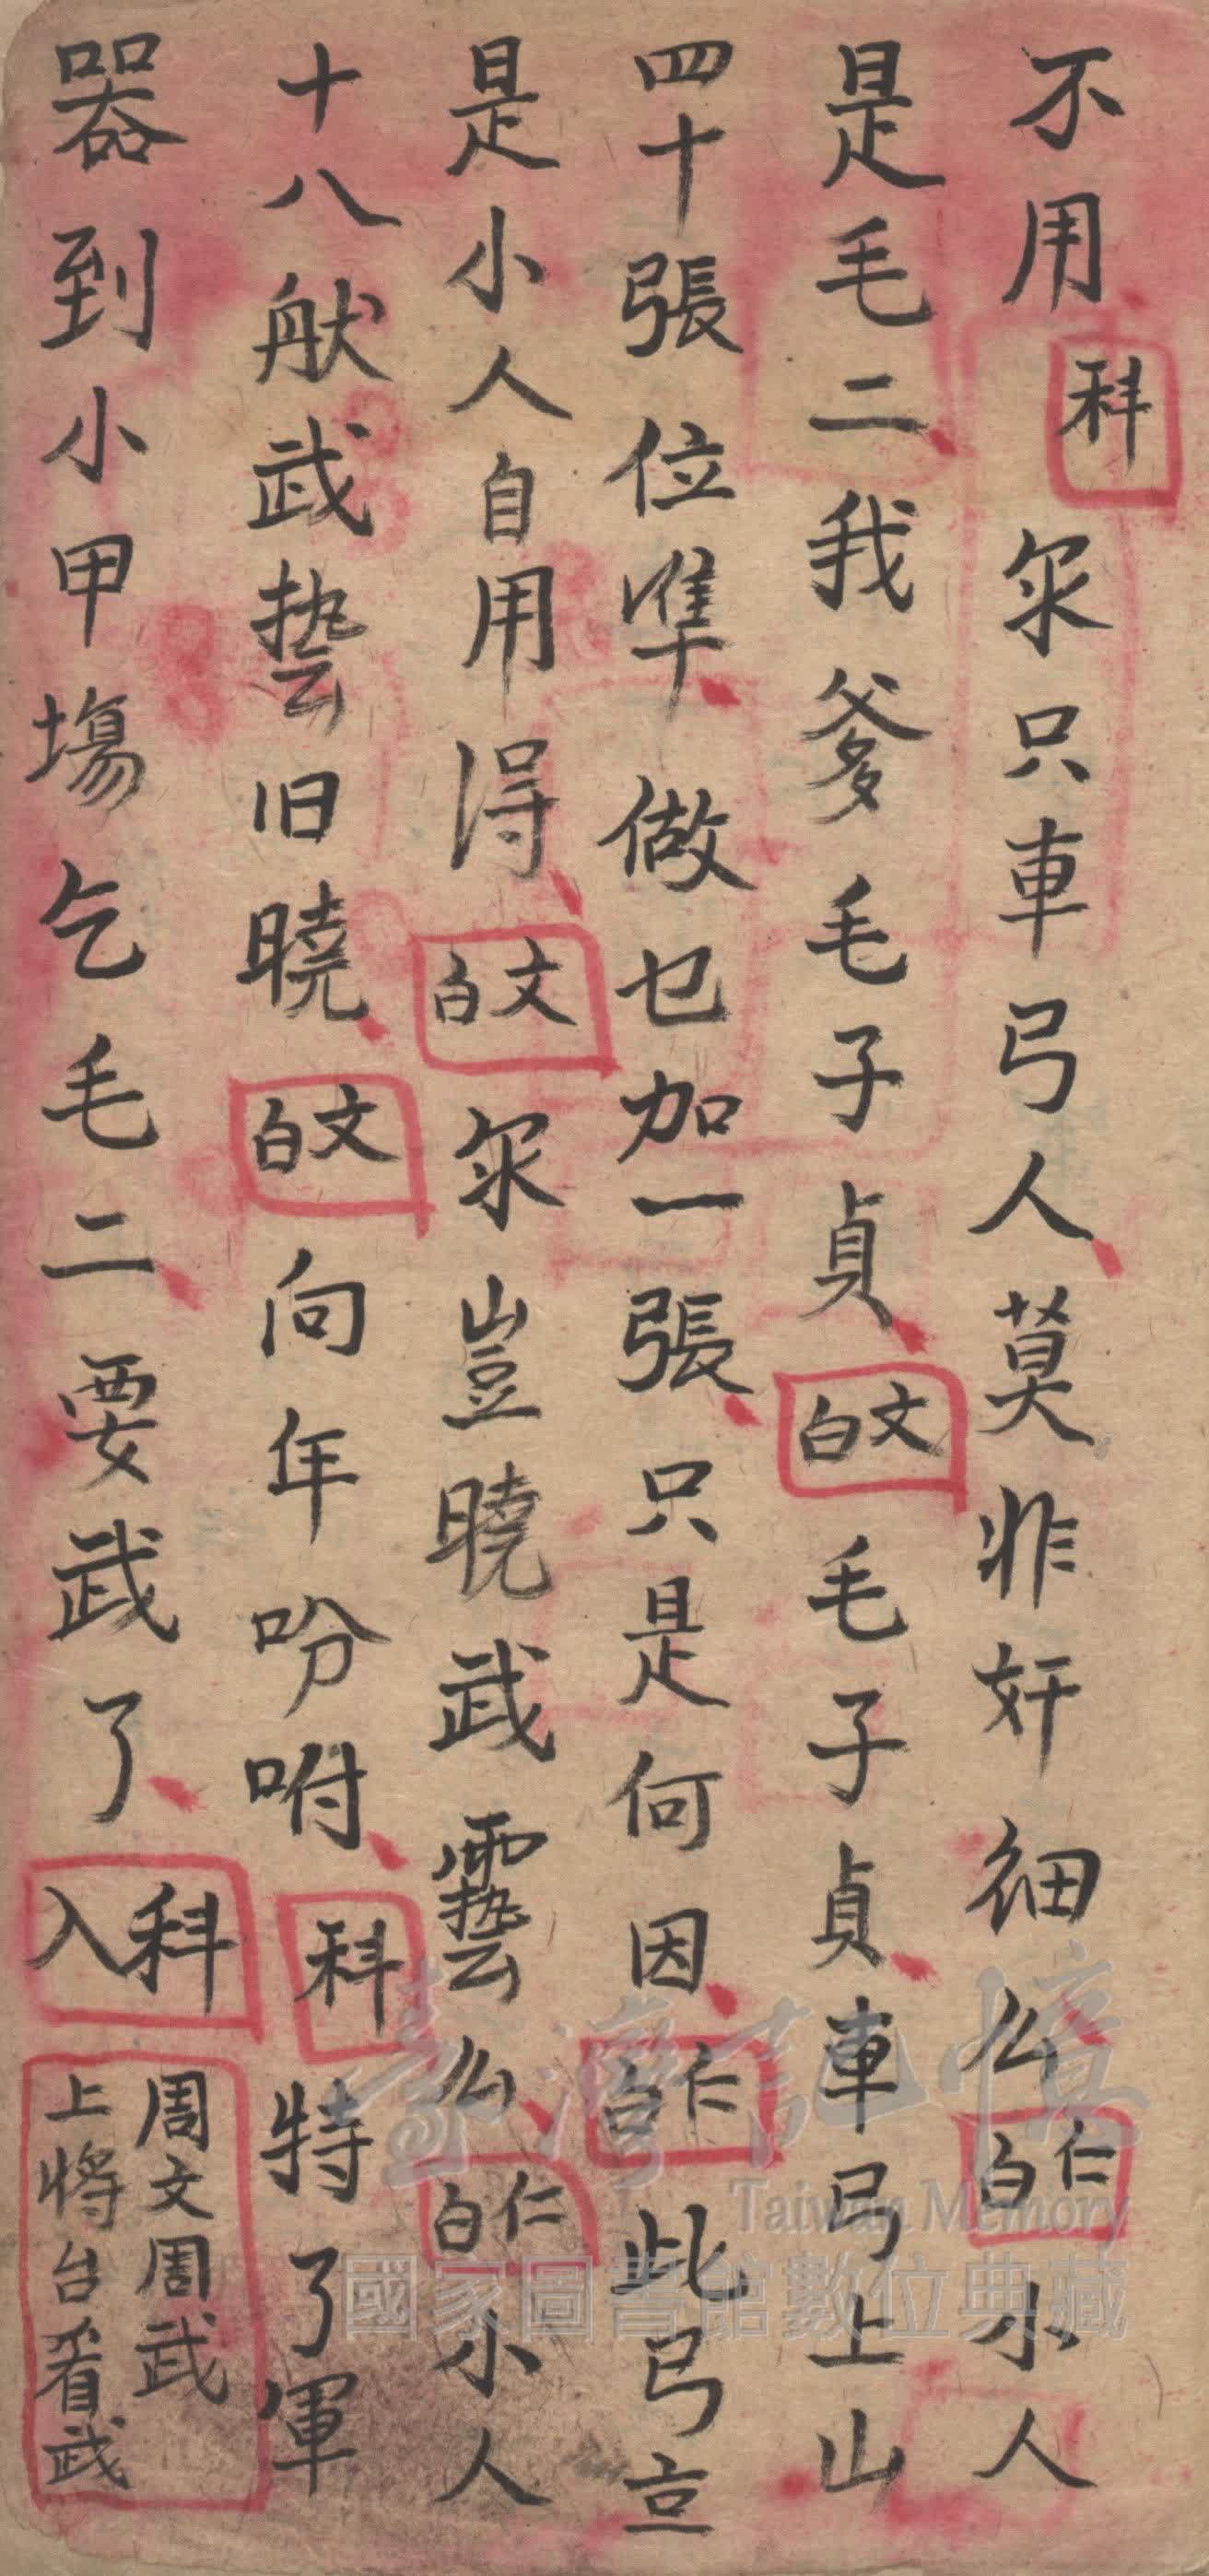 不用科尔只車弓人莫非奸細么仁白小人
是毛二我爹毛子貞文白毛子貞車弓上山
四十張位準做乜加一張只是何因仁白此弓立
是小人自用得文白尔豈曉武藝么仁白小人
十八般武藝旧曉文白向年吩咐科特了軍
器到小甲塲乞毛二要武了科入周文周武上將台看武
臺灣記憶
Taiwan Memory
國家圖書館數位典藏